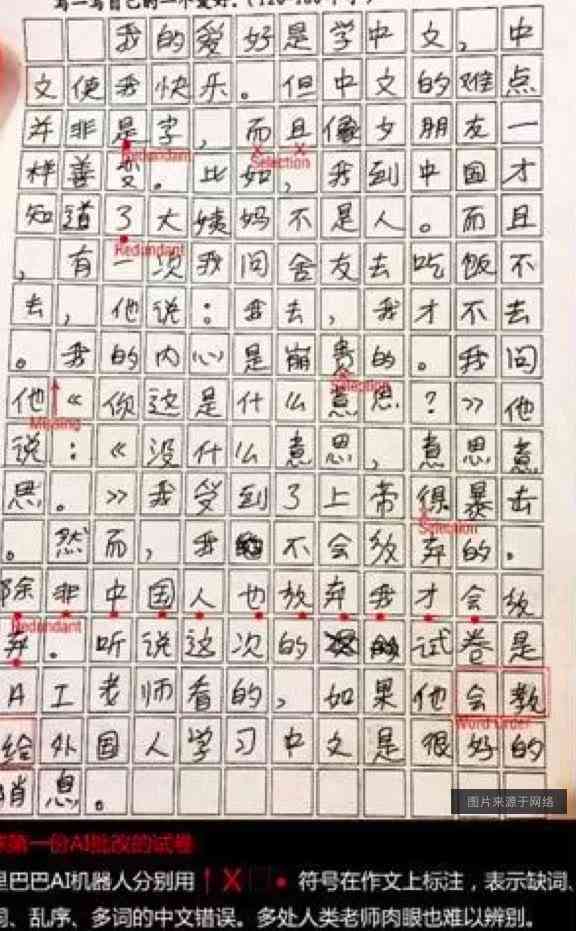 我的爱好是学中文，中
文使我快乐。但中文的难点
并非是字，而且像女朋友一
Redundant
Selection
样善变。比如，我到中国才
知道了大姨妈不是人。而且
Redundant
，有一次我问舍友去吃饭不
去，他说：我去，我才不去
。我的内心是崩贵的。我问
Selection
他《你这是什么意思？》他
Missing
说：《没什么意思，意思意
思。》我受到了上帝得暴击
Selection
。然而，我不会放弃的。
除非中国人也放弃我才会放
Redundant
弃。听说这次的试卷是
AI老师看的，如果他会教
Word Order
给外国人学习中文是很好的
消息。
图片来源于网络
第一份AI批改的试卷
里巴巴AI机器人分别用↑X□●符号在作文上标注，表示缺词、
词、乱序、多词的中文错误。多处人类老师肉眼也难以辨别。